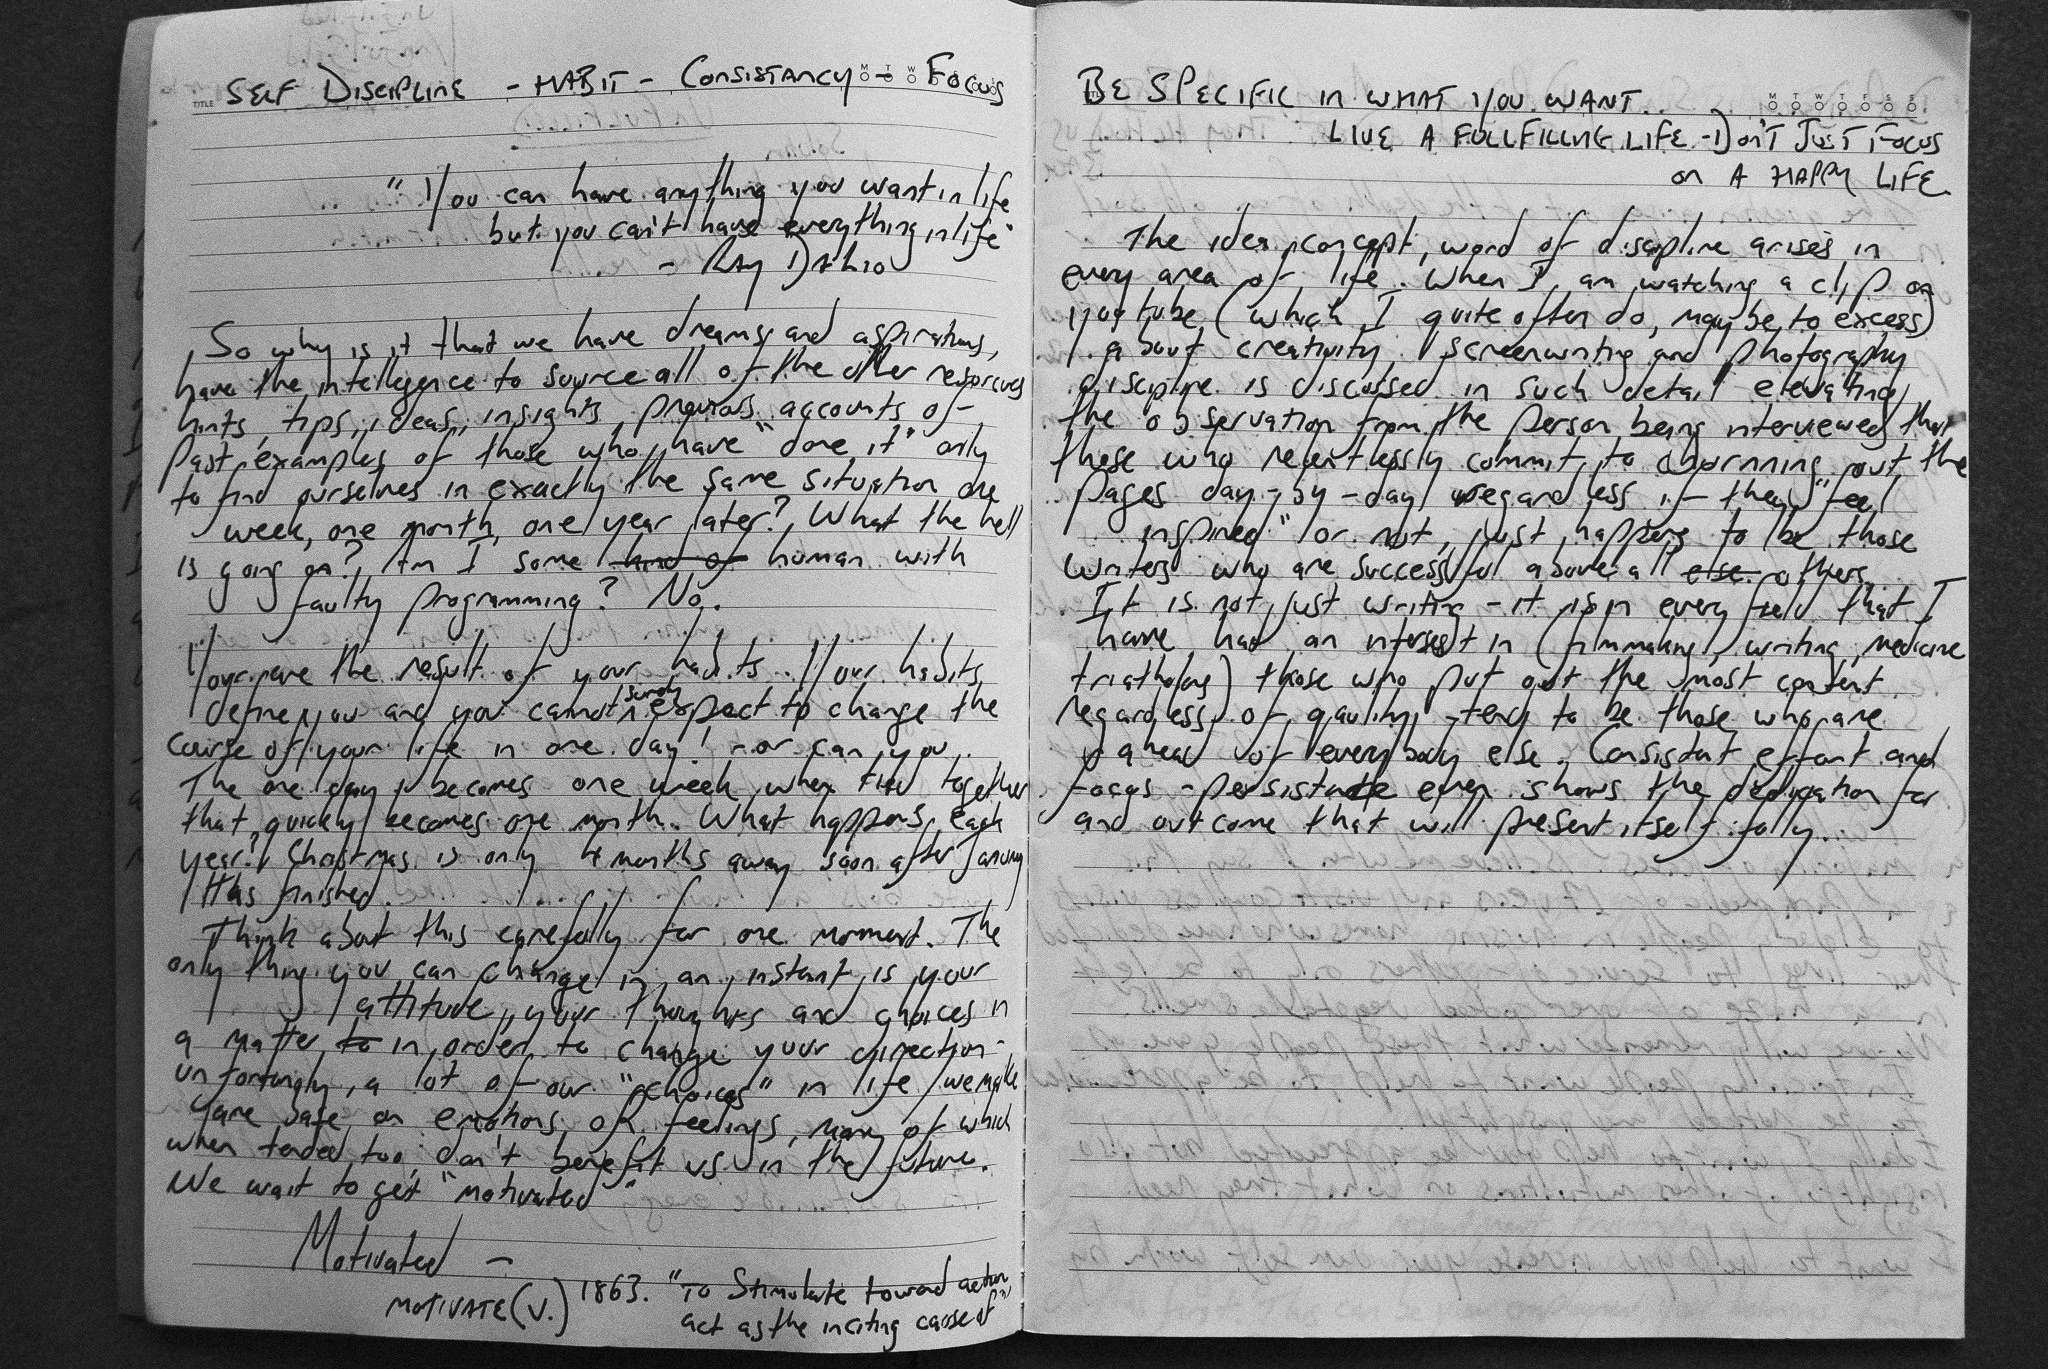 SELF DISCIPLINE - HABIT - CONSISTANCY - FOCUS
TITLE
M T W
"You can have anything you want in life
but you can't have everything in life"
- RAY DALIO
So why is it that we have dreams and aspirations,
have the intellegence to source all of the other resources
hints, tips, ideas, insights, previous accounts of
past examples of those who have "done it" only
to find ourselves in exactly the same situation one
week, one month, one year later? What the hell
is going on? Am I some kind of human with
faulty programming? No.
Your are the result of your habits. Your habits
define you and you cannot simply expect to change the
course of your life in one day! - or can you..
The one day becomes one week when tied together
that quickly becomes one month. What happens each
year? Christmas is only 4 months away soon after January
Has finished.
Think about this carefully for one moment. The
only thing you can change in an instant is your
attitude, your thoughts and choices in
a matter to in order to change your direction -
unfortungly, a lot of our "choices" in life we make
are base on emotions, or feelings, many of which
when tended too, don't benefit us in the future.
We wait to get "motivated"
Motivated -
MOTIVATE (V.) 1863. "To Stimulate toward action,
act as the inciting cause of"
BE SPECIFIC IN WHAT YOU WANT
M T W T F S S
LIVE A FULLFILLING LIFE - DON'T JUST FOCUS
ON A HAPPY LIFE
The idea, concept, word of discipline arises in
every area of life. When I am watching a clip on
youtube (which I quite often do, maybe to excess)
about creativity, screenwriting and photography
discipline is discussed in such detail elevating
the observation from the person being interviewed that
those who relentlessly commit to churning out the
pages day-by-day regardless if they "feel
inspired" or not, just happens to be those
writers who are successful above all else others.
It is not just writing - it is in every field that I
have had an interest in (filmmaking, writing, medicine
triathlons) those who put out the most content
regardless of quality - tend to be those who are
ahead of everybody else. Consistant effort and
focus - persistance even shows the dedication for
and outcome that will present itself fully..